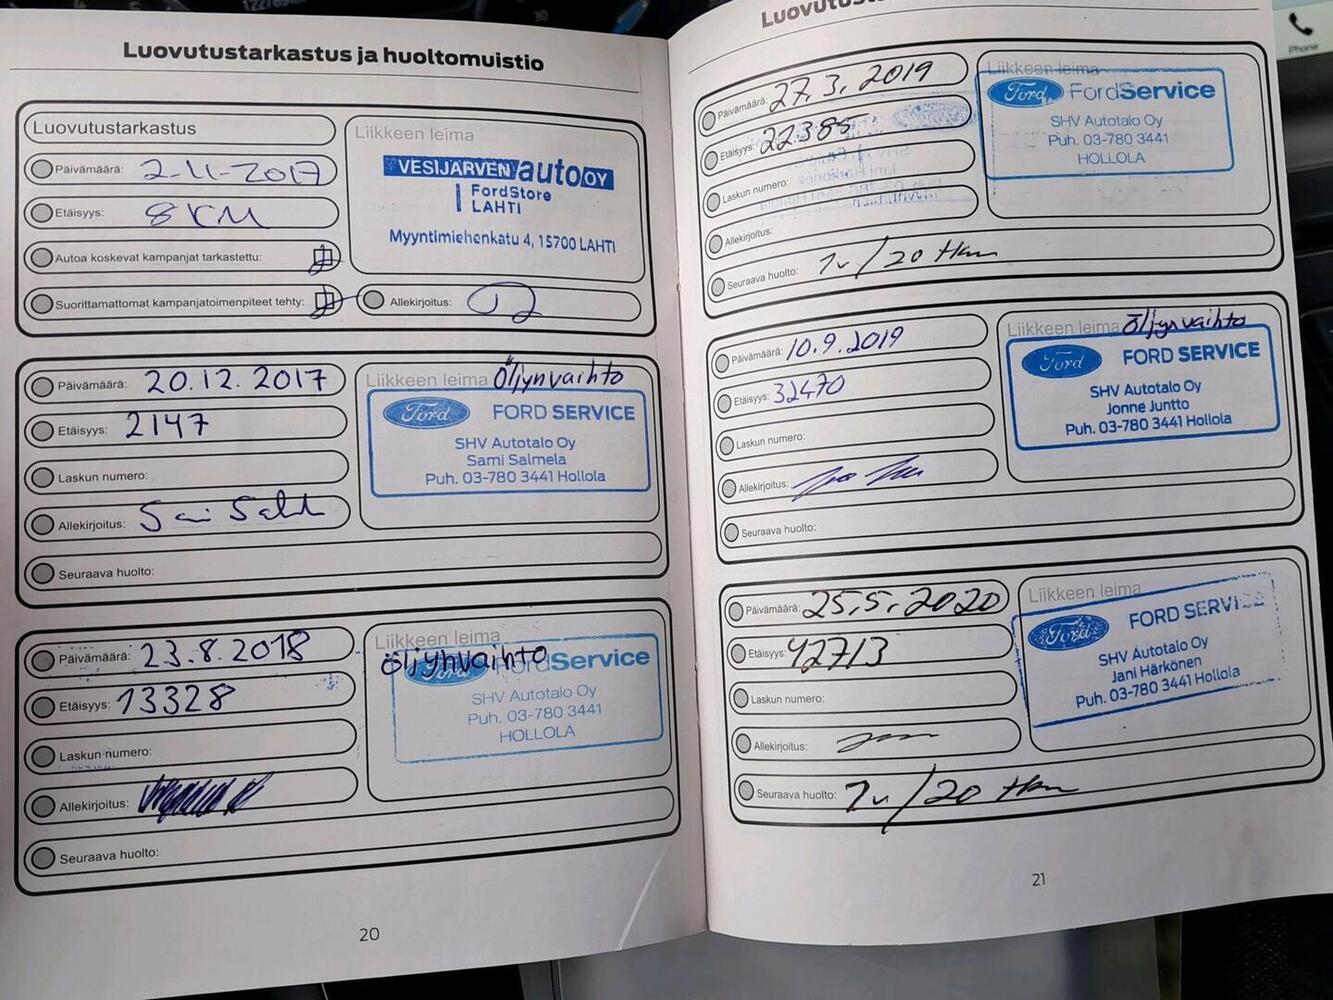 Luovutustarkastus ja huoltomuistio
Luovutustarkastus
Päivämäärä: 2-11-2017
Etäisyys: 8 KM
Autoa koskevat kampanjat tarkastettu:
Suorittamattomat kampanjatoimenpiteet tehty:
Liikkeen leima
VESIJÄRVEN auto OY
FordStore
LAHTI
Myyntimiehenkatu 4, 15700 LAHTI
Allekirjoitus:
Päivämäärä: 20.12.2017
Etäisyys: 2147
Laskun numero:
Allekirjoitus:
Seuraava huolto:
Liikkeen leima Öljynvaihto
Ford FORD SERVICE
SHV Autotalo Oy
Sami Salmela
Puh. 03-780 3441 Hollola
Päivämäärä: 23.8.2018
Etäisyys: 13328
Laskun numero:
Allekirjoitus:
Seuraava huolto:
Liikkeen leima
öljynvaihto
Ford FordService
SHV Autotalo Oy
Puh. 03-780 3441
HOLLOLA
20
Päivämäärä: 27.3.2019
Etäisyys: 22385
Laskun numero:
Allekirjoitus:
Seuraava huolto: 1v/20 tkm
Liikkeen leima
Ford FordService
SHV Autotalo Oy
Puh. 03-780 3441
HOLLOLA
Päivämäärä: 10.9.2019
Etäisyys: 32470
Laskun numero:
Allekirjoitus:
Seuraava huolto:
Liikkeen leima öljynvaihto
Ford FORD SERVICE
SHV Autotalo Oy
Jonne Juntto
Puh. 03-780 3441 Hollola
Päivämäärä: 25.5.2020
Etäisyys: 42713
Laskun numero:
Allekirjoitus:
Seuraava huolto: 1v/20 tkm
Liikkeen leima
Ford FORD SERVICE
SHV Autotalo Oy
Jani Härkönen
Puh. 03-780 3441 Hollola
21
Phone